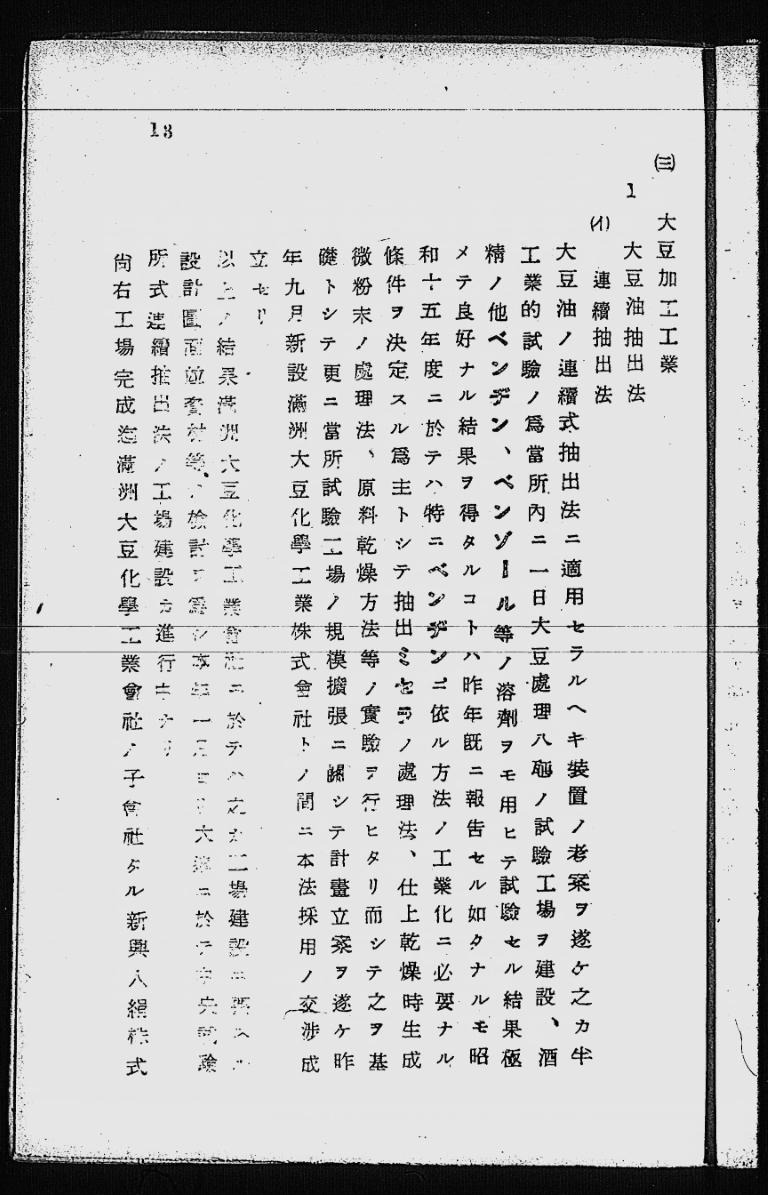 13
㈢ 大豆加工工業
1 大豆油抽出法
(イ) 連續抽出法
大豆油ノ連續式抽出法ニ適用セラルヘキ裝置ノ考案ヲ遂ケ之カ半
工業的試驗ノ爲當所內ニ一日大豆處理八瓲ノ試驗工場ヲ建設、酒
精ノ他ベンヂン、ベンゾール等ノ溶劑ヲモ用ヒテ試驗セル結果極
メテ良好ナル結果ヲ得タルコトハ昨年旣ニ報吿セル如クナルモ昭
和十五年度ニ於テハ特ニベンヂンニ依ル方法ノ工業化ニ必要ナル
條件ヲ決定スル爲主トシテ抽出ミセラノ處理法、仕上乾燥時生成
微粉末ノ處理法、原料乾燥方法等ノ實驗ヲ行ヒタリ而シテ之ヲ基
礎トシテ更ニ當所試驗工場ノ規模擴張ニ關シテ計畫立案ヲ遂ケ昨
年九月新設滿洲大豆化學工業株式會社トノ間ニ本法採用ノ交涉成
立セリ
以上ノ結果滿洲大豆化學工業會社ニ於テハ之カ工場建設ニ要スル
設計圖面竝資材等ノ檢討ヲ爲シ本年一月ヨリ大連ニ於テ中央試驗
所式連續抽出法ノ工場建設カ進行中ナリ
尙右工場完成迄滿洲大豆化學工業會社ノ子會社タル新興人絹株式